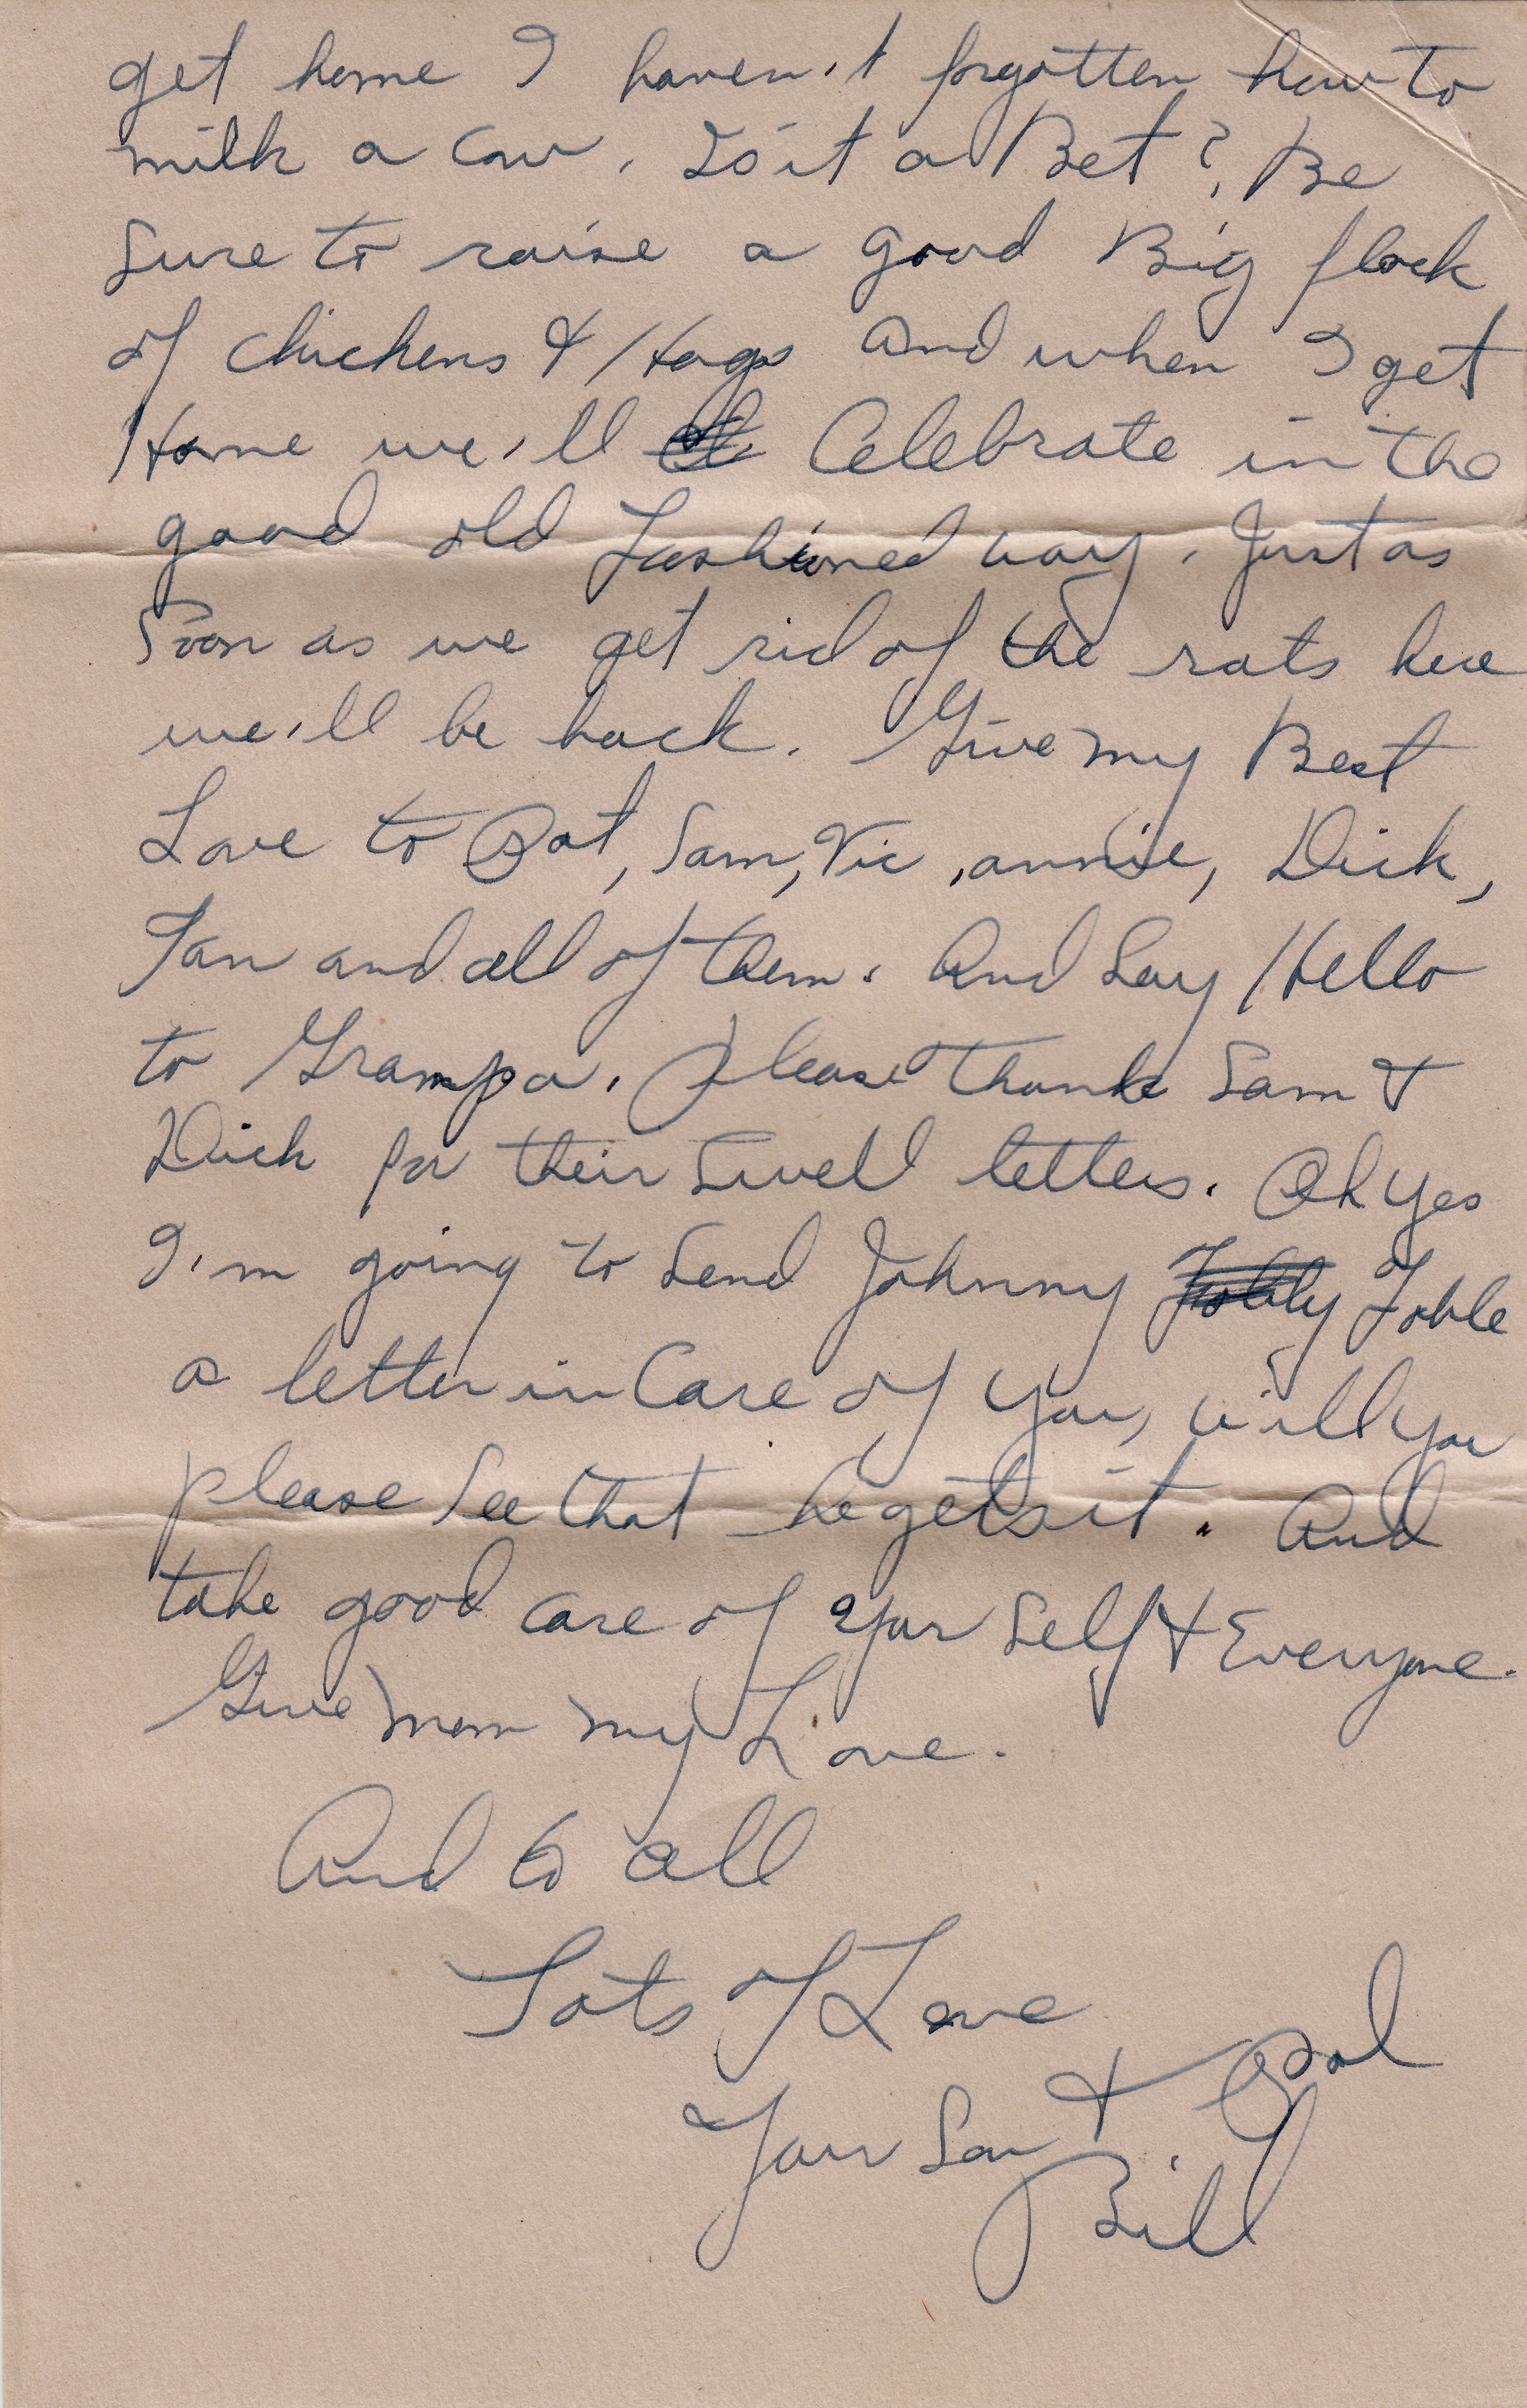 get home I haven't forgotten how to
milk a cow. Is it a Bet?, Be
Sure to raise a good Big flock
of chickens & Hogs and when I get
Home we'll Celebrate in the
good old Fashioned way. Just as
Soon as we get rid of the rats here
we'll be back. Give my Best
Love to Pat, Sam, Vic, annie, Dick,
Fan and all of them. And Say Hello
to Grampa. Please thank Sam &
Dick for their Swell letters. Oh yes
I'm going to Send Johnny
a letter in Care of you, will you
please See that he gets it. And
take good care of your Self & Everyone.
Give mom my Love.
And to all
Lots of Love
Your Son & Pal
Bill